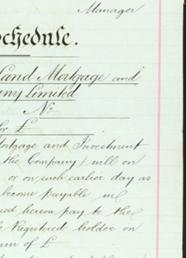 Manager
Schedule.
Land Mortgage and
Company Limited
No
for £
Mortgage and Investment
the Company) will on
or on such earlier day as
become payable, in
hereon pay to the
Registered holder on
sum of £